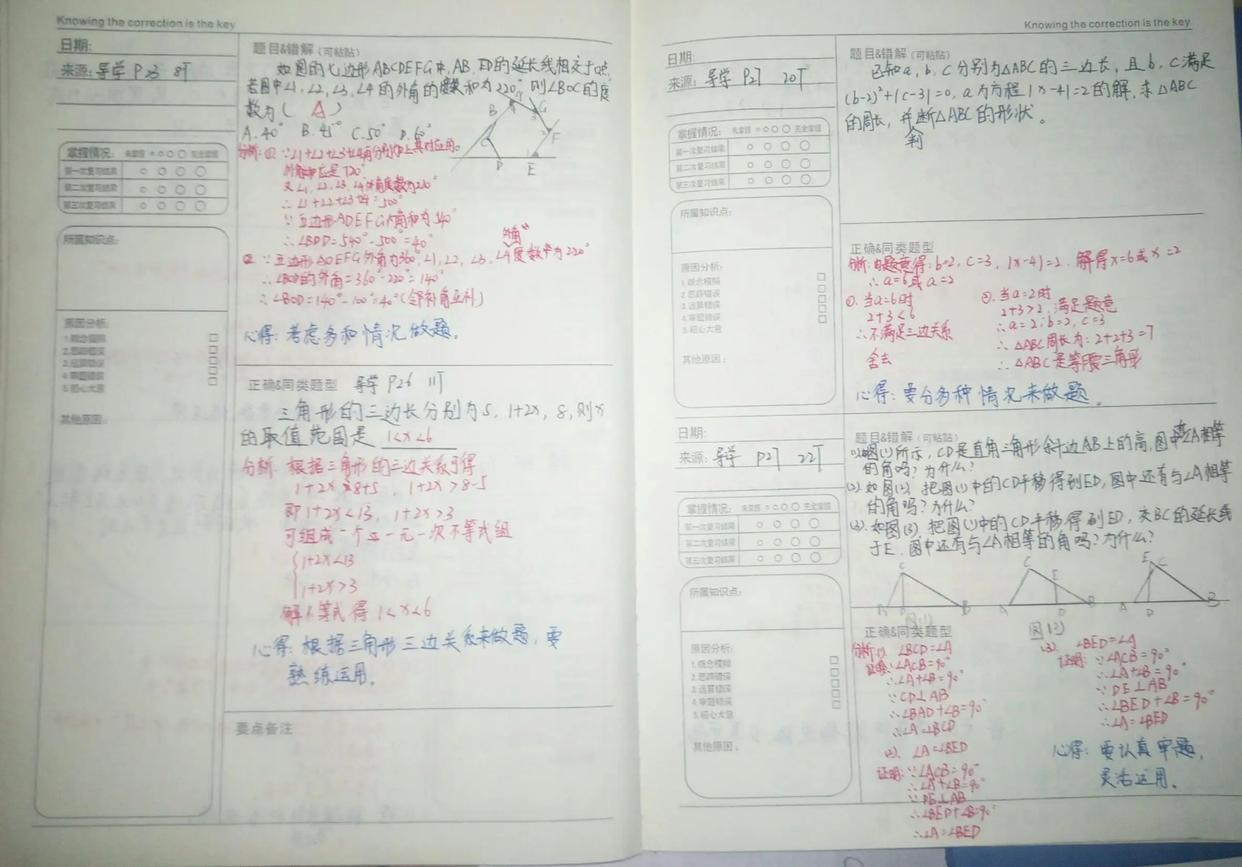 Knowing the correction is the key
日期:
来源: 导学 P23 8T
掌握情况: 未掌握 完全掌握
第一次复习结果
第二次复习结果
第三次复习结果
所属知识点:
原因分析:
1.概念模糊
2.思路错误
3.运算错误
4.审题错误
5.粗心大意
其他原因:
题目&错解(可粘贴)
如图的七边形ABCDEFG中,AB,ED的延长线相交于O点,
若图中∠1,∠2,∠3,∠4的外角的度数和为220°,则∠BOC的度
数为( A )
A.40° B.45° C.50° D.60°
B G F D E
外角和应是720°
又∠1,∠2,∠3,∠4外角度数为220°
∴∠1+∠2+∠3+∠4=500°
∵五边形AOEFG内角和为540°
∴∠BOD=540°-500°=40°
∵五边形AOEFG外角为360°,∠1,∠2,∠3,∠4度数和为220°
外角
∴∠BOD的外角=360°-220°=140°
心得:考虑多种情况做题。
正确&同类题型 导学 P26 11T
三角形的三边长分别为5, 1+2x, 8,则x
的取值范围是 1<x<6
分析:根据三角形的三边关系可得
1+2x<8+5, 1+2x>8-5
即1+2x<13, 1+2x>3
可组成一个一元一次不等式组
1+2x<13
1+2x>3
解不等式得 1<x<6
心得:根据三角形三边关系来做题,要
熟练运用。
要点备注
Knowing the correction is the key
日期:
来源: 导学 P27 20T
掌握情况: 未掌握 完全掌握
第一次复习结果
第二次复习结果
第三次复习结果
所属知识点:
原因分析:
1.概念模糊
2.思路错误
3.运算错误
4.审题错误
5.粗心大意
其他原因:
题目&错解(可粘贴)
已知a,b,C分别为△ABC的三边长,且b,C满足
(b-2)²+|c-3|=0, a为方程|x-4|=2的解,求△ABC
的周长,并断△ABC的形状。
判
正确&同类题型
分析:由题意得:b=2, C=3, |x-4|=2, 解得x=6或x=2
∴a=6或a=2
①.当a=6时
2+3<6
∴不满足三边关系
舍去
②.当a=2时
2+3>2,满足题意
∴a=2,b=2,c=3
∴△ABC周长为:2+2+3=7
∴△ABC是等腰三角形
心得:要分多种情况来做题。
日期:
来源: 导学 P27 22T
掌握情况: 未掌握 完全掌握
第一次复习结果
第二次复习结果
第三次复习结果
所属知识点:
原因分析:
1.概念模糊
2.思路错误
3.运算错误
4.审题错误
5.粗心大意
其他原因:
题目&错解(可粘贴)
(1)如图(1)所示,CD是直角三角形斜边AB上的高,图中有与∠A相等
的角吗?为什么?
(2).如图(2),把图(1)中的CD平移得到ED,图中还有与∠A相等
的角吗?为什么?
(3).如图(3),把图(1)中的CD平移得到ED,交BC的延长线
于E.图中还有与∠A相等的角吗?为什么?
C A D B
C E A D B
E C A D B
图(1)
图(2)
正确&同类题型
分析:(1). ∠BCD=∠A
证明:∵∠ACB=90°
∴∠A+∠B=90°
∵CD⊥AB
∴∠BAD+∠B=90°
∴∠A=∠BCD
(2). ∠A=∠BED
证明:∵∠ACB=90°
∴∠A+∠B=90°
∵DE⊥AB
∴∠BED+∠B=90°
∴∠A=∠BED
(3). ∠BED=∠A
证明:∵∠ACB=90°
∴∠A+∠B=90°
∵DE⊥AB
∴∠BED+∠B=90°
∴∠A=∠BED
心得:要认真审题,
灵活运用。